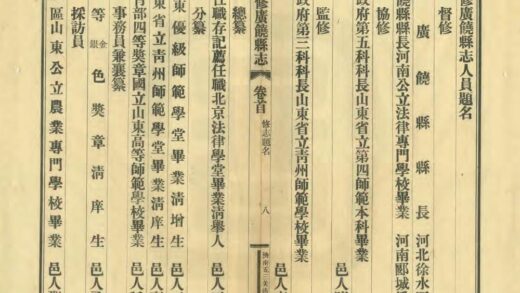 修廣饒縣志人員題名
督修
廣饒縣縣長河北徐水
饒縣縣長河南公立法律專門學校畢業 河南郾城
協修
政府第五科科長山東省立第四師範本科畢業 邑人
政府第三科科長山東省立青州師範學校畢業 邑人
監修
修廣饒縣志 卷首 修志題名 八
總纂
任職存記薦任職北京法律學堂畢業清舉人 邑人
分纂
東優級師範學堂畢業清增生 邑人
東省立青州師範學堂畢業清庠生 邑人
育部四等獎章國立山東高等師範學校畢業 邑人
事務員兼襄纂
等金銀色獎章清庠生 邑人
採訪員
區山東公立農業專門學校畢業 邑人